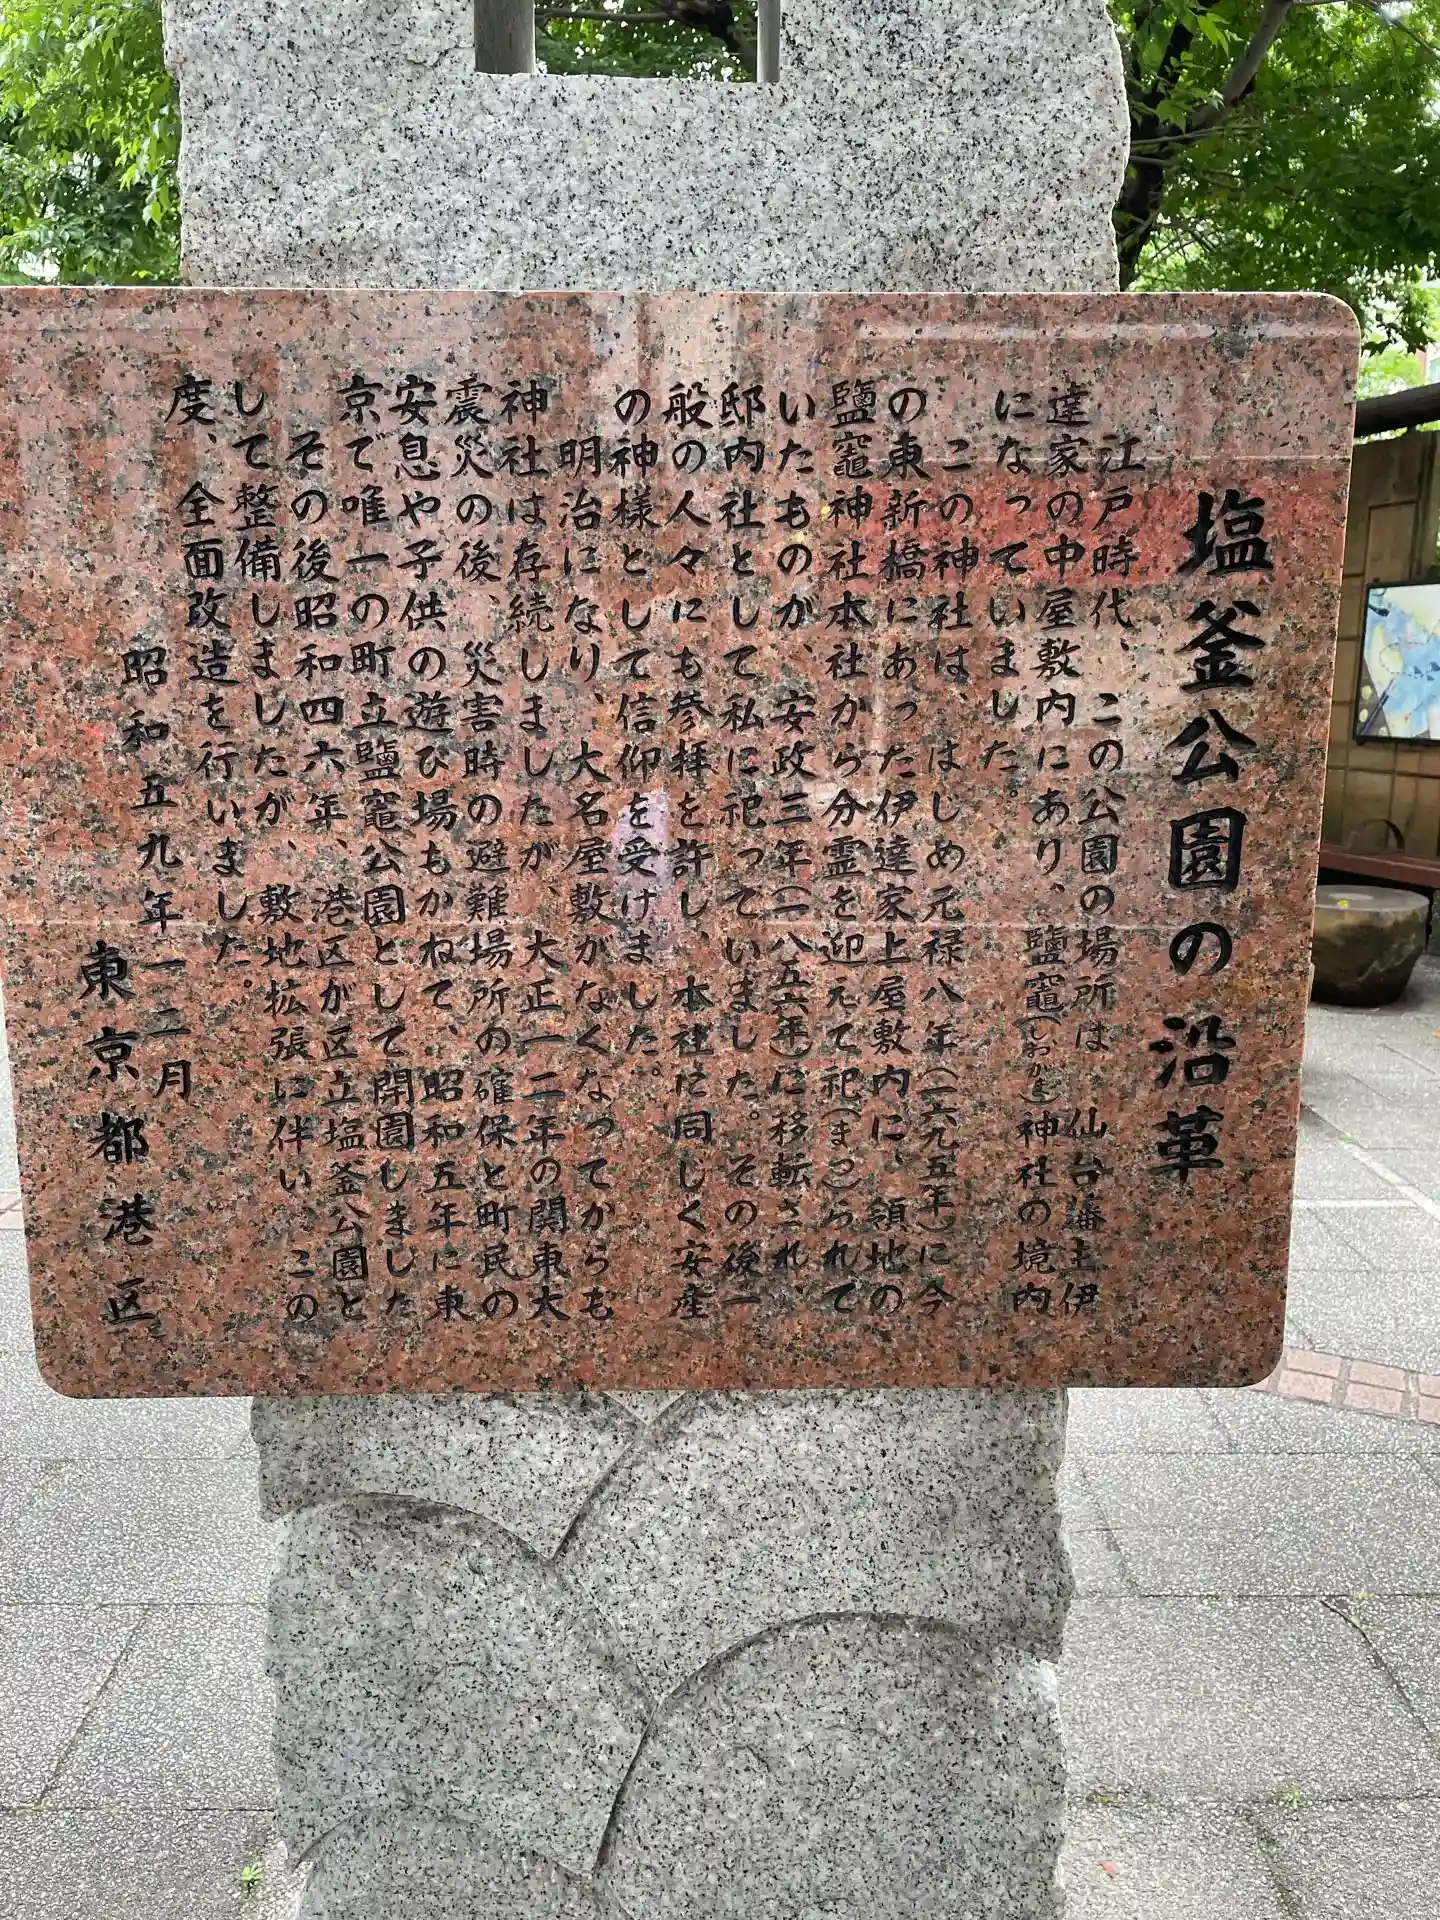 塩釜公園の沿革
江戸時代、この公園の場所は、仙台藩主伊
達家の中屋敷内にあり、鹽竈(しおがま)神社の境内
になっていました。
この神社は、はじめ元禄八年(一六九五年)に今
の東新橋にあった伊達家上屋敷内に、領地の
鹽竈神社本社から分霊を迎えて祀(まつ)られて
いたものが、安政三年(一八五六年)に移転され、
邸内社として私に祀っていました。その後一
般の人々にも参拝を許し、本社に同じく安産
の神様として信仰を受けました。
明治になり、大名屋敷がなくなってからも
神社は存続しましたが、大正一二年の関東大
震災の後、災害時の避難場所の確保と町民の
安息や子供の遊び場もかねて、昭和五年に東
京で唯一の町立鹽竈公園として開園しました
その後昭和四六年、港区が区立塩釜公園と
して整備しましたが、敷地拡張に伴い、この
度、全面改造を行いました。
昭和五九年一二月
東京都港区